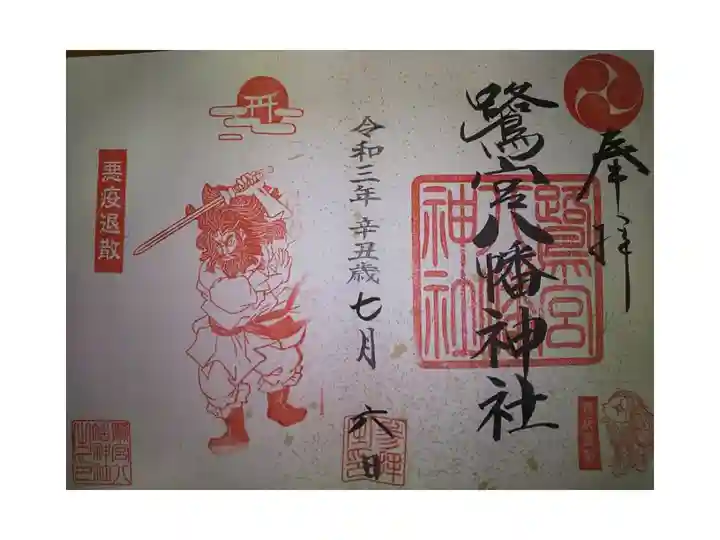 奉拝
鷺宮八幡神社
鷺宮八幡神社
令和三年 辛丑歳 七月 六日
悪疫退散